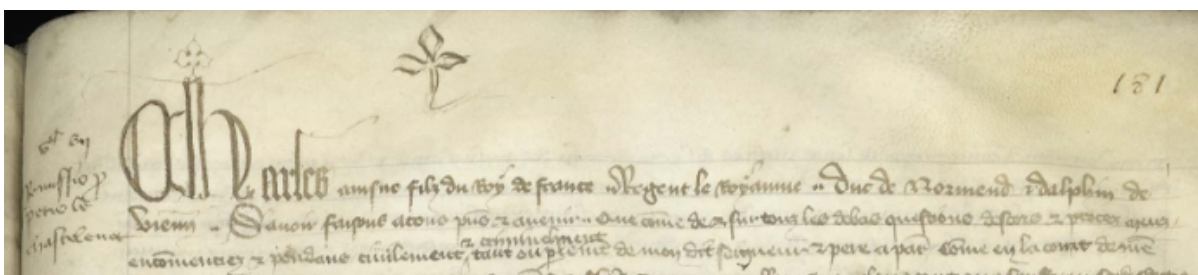 181
Charles ainsne filz du Roy de france Regent le Royaume Duc de Normend & dalphin de
vienn Savoir faisons a tous pns & avenir Que cõme de & sur tous les debas questions descors & proces meus
& criminelment
encõmenciez & pendans civilement tant ou de mon dit seigneur & pere a part cõme en la court de
Remissio p
petro le